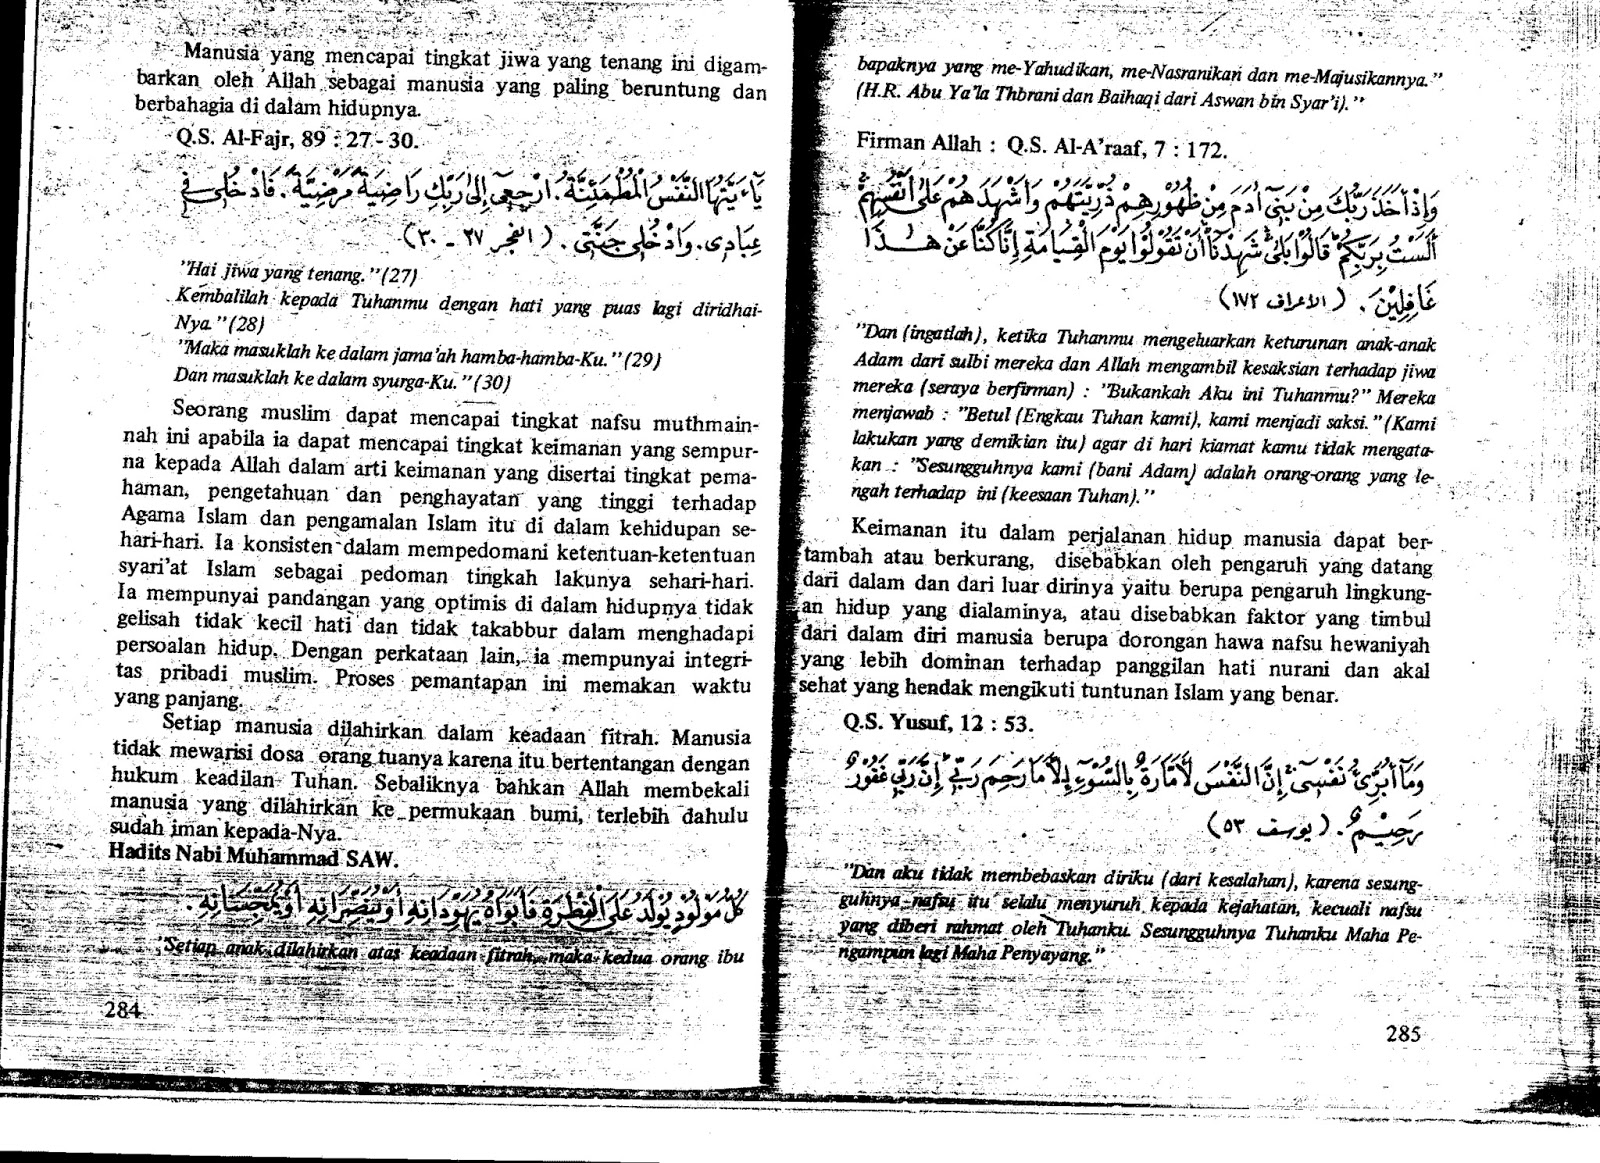 Manusia yang mencapai tingkat jiwa yang tenang ini digam-
barkan oleh Allah sebagai manusia yang paling beruntung dan
berbahagia di dalam hidupnya.
Q.S. Al-Fajr, 89 : 27 - 30.
يَآءَيَّتُهَا النَّفْسُ الْمُطْمَئِنَّةُ. ارْجِعِيٓ إِلىٰ رَبِّكِ رَاضِيَةً مَّرْضِيَّةً. فَادْخُلِى فِي
عِبَادِي. وَادْخُلِى جَنَّتِي. (الفجر ٢٧ - ٣٠)
"Hai jiwa yang tenang." (27)
Kembalilah kepada Tuhanmu dengan hati yang puas lagi diridhai-
Nya." (28)
"Maka masuklah ke dalam jama'ah hamba-hamba-Ku." (29)
Dan masuklah ke dalam syurga-Ku." (30)
Seorang muslim dapat mencapai tingkat nafsu muthmain-
nah ini apabila ia dapat mencapai tingkat keimanan yang sempur-
na kepada Allah dalam arti keimanan yang disertai tingkat pema-
haman, pengetahuan dan penghayatan yang tinggi terhadap
Agama Islam dan pengamalan Islam itu di dalam kehidupan se-
hari-hari. Ia konsisten dalam mempedomani ketentuan-ketentuan
syari'at Islam sebagai pedoman tingkah lakunya sehari-hari.
Ia mempunyai pandangan yang optimis di dalam hidupnya tidak
gelisah tidak kecil hati dan tidak takabbur dalam menghadapi
persoalan hidup. Dengan perkataan lain, ia mempunyai integri-
tas pribadi muslim. Proses pemantapan ini memakan waktu
yang panjang.
Setiap manusia dilahirkan dalam keadaan fitrah. Manusia
tidak mewarisi dosa orang tuanya karena itu bertentangan dengan
hukum keadilan Tuhan. Sebaliknya bahkan Allah membekali
manusia yang dilahirkan ke permukaan bumi, terlebih dahulu
sudah iman kepada-Nya.
Hadits Nabi Muhammad SAW.
كُلُّ مَوْلُوْدٍ يُوْلَدُ عَلَى الْفِطْرَةِ فَأَبَوَاهُ يُهَوِّدَانِهِ أَوْ يُنَصِّرَانِهِ أَوْ يُمَجِّسَانِهِ.
"Setiap anak dilahirkan atas keadaan fitrah, maka kedua orang ibu
284
bapaknya yang me-Yahudikan, me-Nasranikan dan me-Majusikannya."
(H.R. Abu Ya'la Thbrani dan Baihaqi dari Aswan bin Syar'i)."
Firman Allah : Q.S. Al-A'raaf, 7 : 172.
وَإِذْ أَخَذَ رَبُّكَ مِنْ بَنِىٓ اٰدَمَ مِنْ ظُهُوْرِهِمْ ذُرِّيَّتَهُمْ وَاَشْهَدَهُمْ عَلىٰ أَنْفُسِهِمْۚ
أَلَسْتُ بِرَبِّكُمْۗ قَالُوْا بَلىٰۚ شَهِدْنَآ أَنْ تَقُوْلُوْا يَوْمَ الْقِيَامَةِ إِنَّا كُنَّا عَنْ هٰذَا
غَافِلِيْنَ. (الاعراف ١٧٢)
"Dan (ingatlah), ketika Tuhanmu mengeluarkan keturunan anak-anak
Adam dari sulbi mereka dan Allah mengambil kesaksian terhadap jiwa
mereka (seraya berfirman) : "Bukankah Aku ini Tuhanmu?" Mereka
menjawab : "Betul (Engkau Tuhan kami), kami menjadi saksi." (Kami
lakukan yang demikian itu) agar di hari kiamat kamu tidak mengata-
kan : "Sesungguhnya kami (bani Adam) adalah orang-orang yang le-
ngah terhadap ini (keesaan Tuhan)."
Keimanan itu dalam perjalanan hidup manusia dapat ber-
tambah atau berkurang, disebabkan oleh pengaruh yang datang
dari dalam dan dari luar dirinya yaitu berupa pengaruh lingkung-
an hidup yang dialaminya, atau disebabkan faktor yang timbul
dari dalam diri manusia berupa dorongan hawa nafsu hewaniyah
yang lebih dominan terhadap panggilan hati nurani dan akal
sehat yang hendak mengikuti tuntunan Islam yang benar.
Q.S. Yusuf, 12 : 53.
وَمَآ أُبَرِّئُ نَفْسِىْۚ إِنَّ النَّفْسَ لَأَمَّارَةٌۢ بِالسُّوْٓءِ إِلَّا مَا رَحِمَ رَبِّيْۚ إِنَّ رَبِّيْ غَفُوْرٌ
رَحِيْمٌ. (يوسف ٥٣)
"Dan aku tidak membebaskan diriku (dari kesalahan), karena sesung-
guhnya nafsu itu selalu menyuruh kepada kejahatan, kecuali nafsu
yang diberi rahmat oleh Tuhanku. Sesungguhnya Tuhanku Maha Pe-
ngampun lagi Maha Penyayang."
285